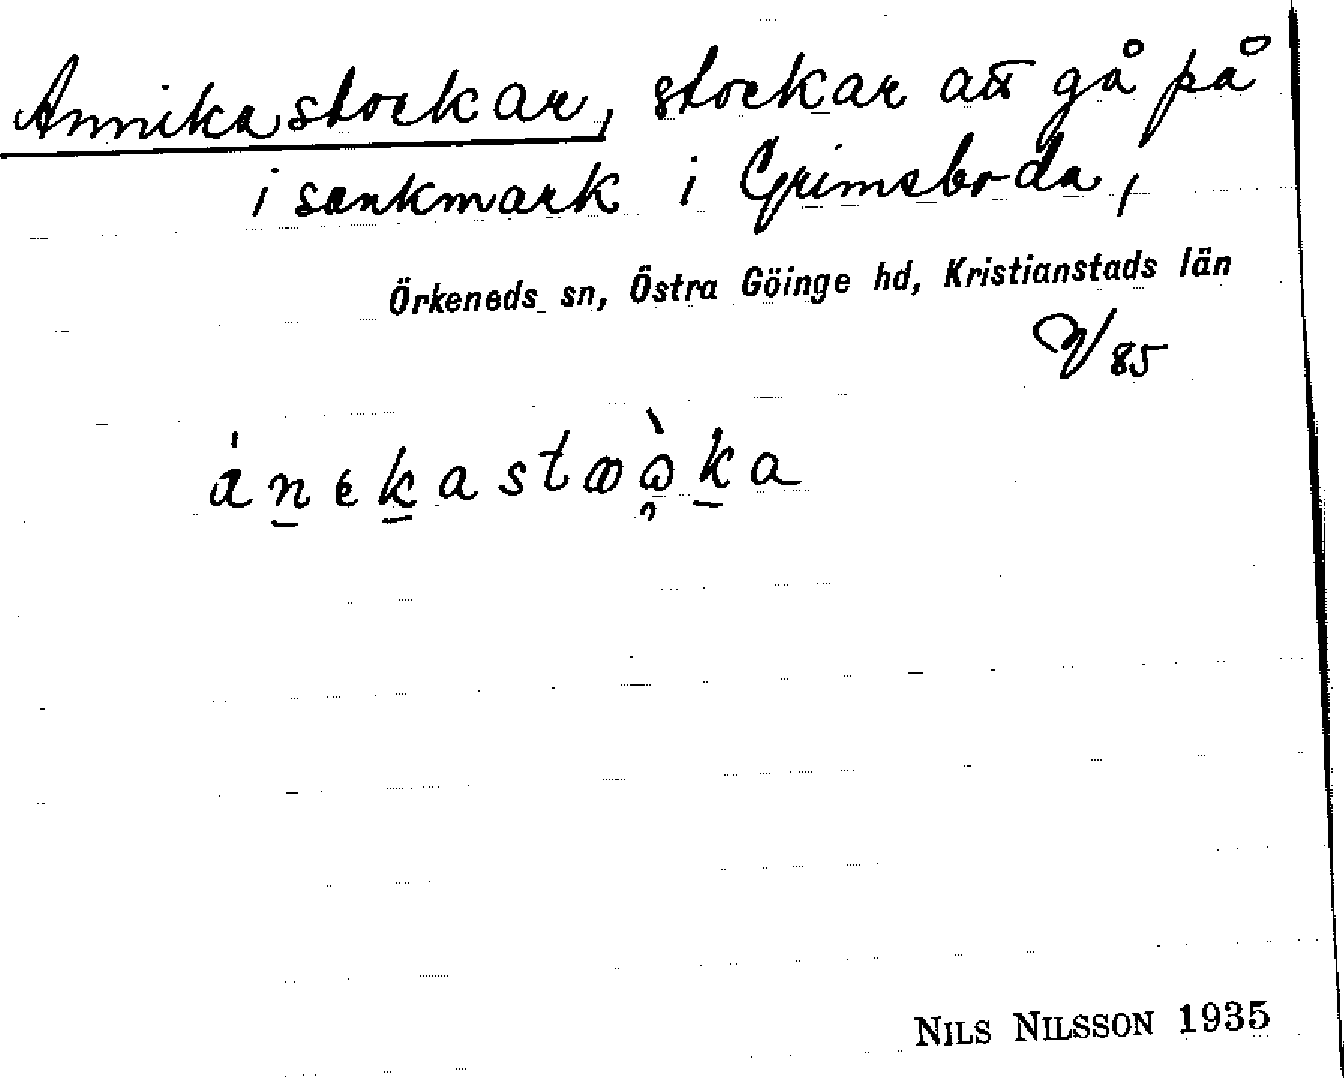 Annikastockar, stockar att gå på
i sankmark i Grimsboda,
Örkeneds sn, Östra Göinge hd, Kristianstads län
/85
NILS NILSSON 1935